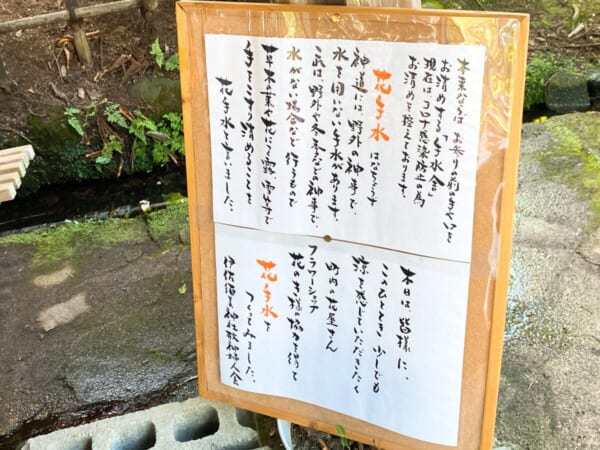 本来ならば お参りの前の手やロを
お清めする「手水舎」
現在は コロナ感染防止の為
お清めを控えております。
花手水 はなちょうず
神道には 野外の神事で、
水を用いない手水があります。
これは 野外や冬季などの神事で、
水がない場合など 行うもので
草木の葉や花につく露、雪などで
手をこすり清めることを
花手水と言いました。
本日は、皆様に、
このひととき 少しでも
涼を感じていただきたく
町内の花屋さん
フラワーショップ
花のお様の協力を得て
花手水を
つくってみました。
伊佐須美神社敬神婦人会